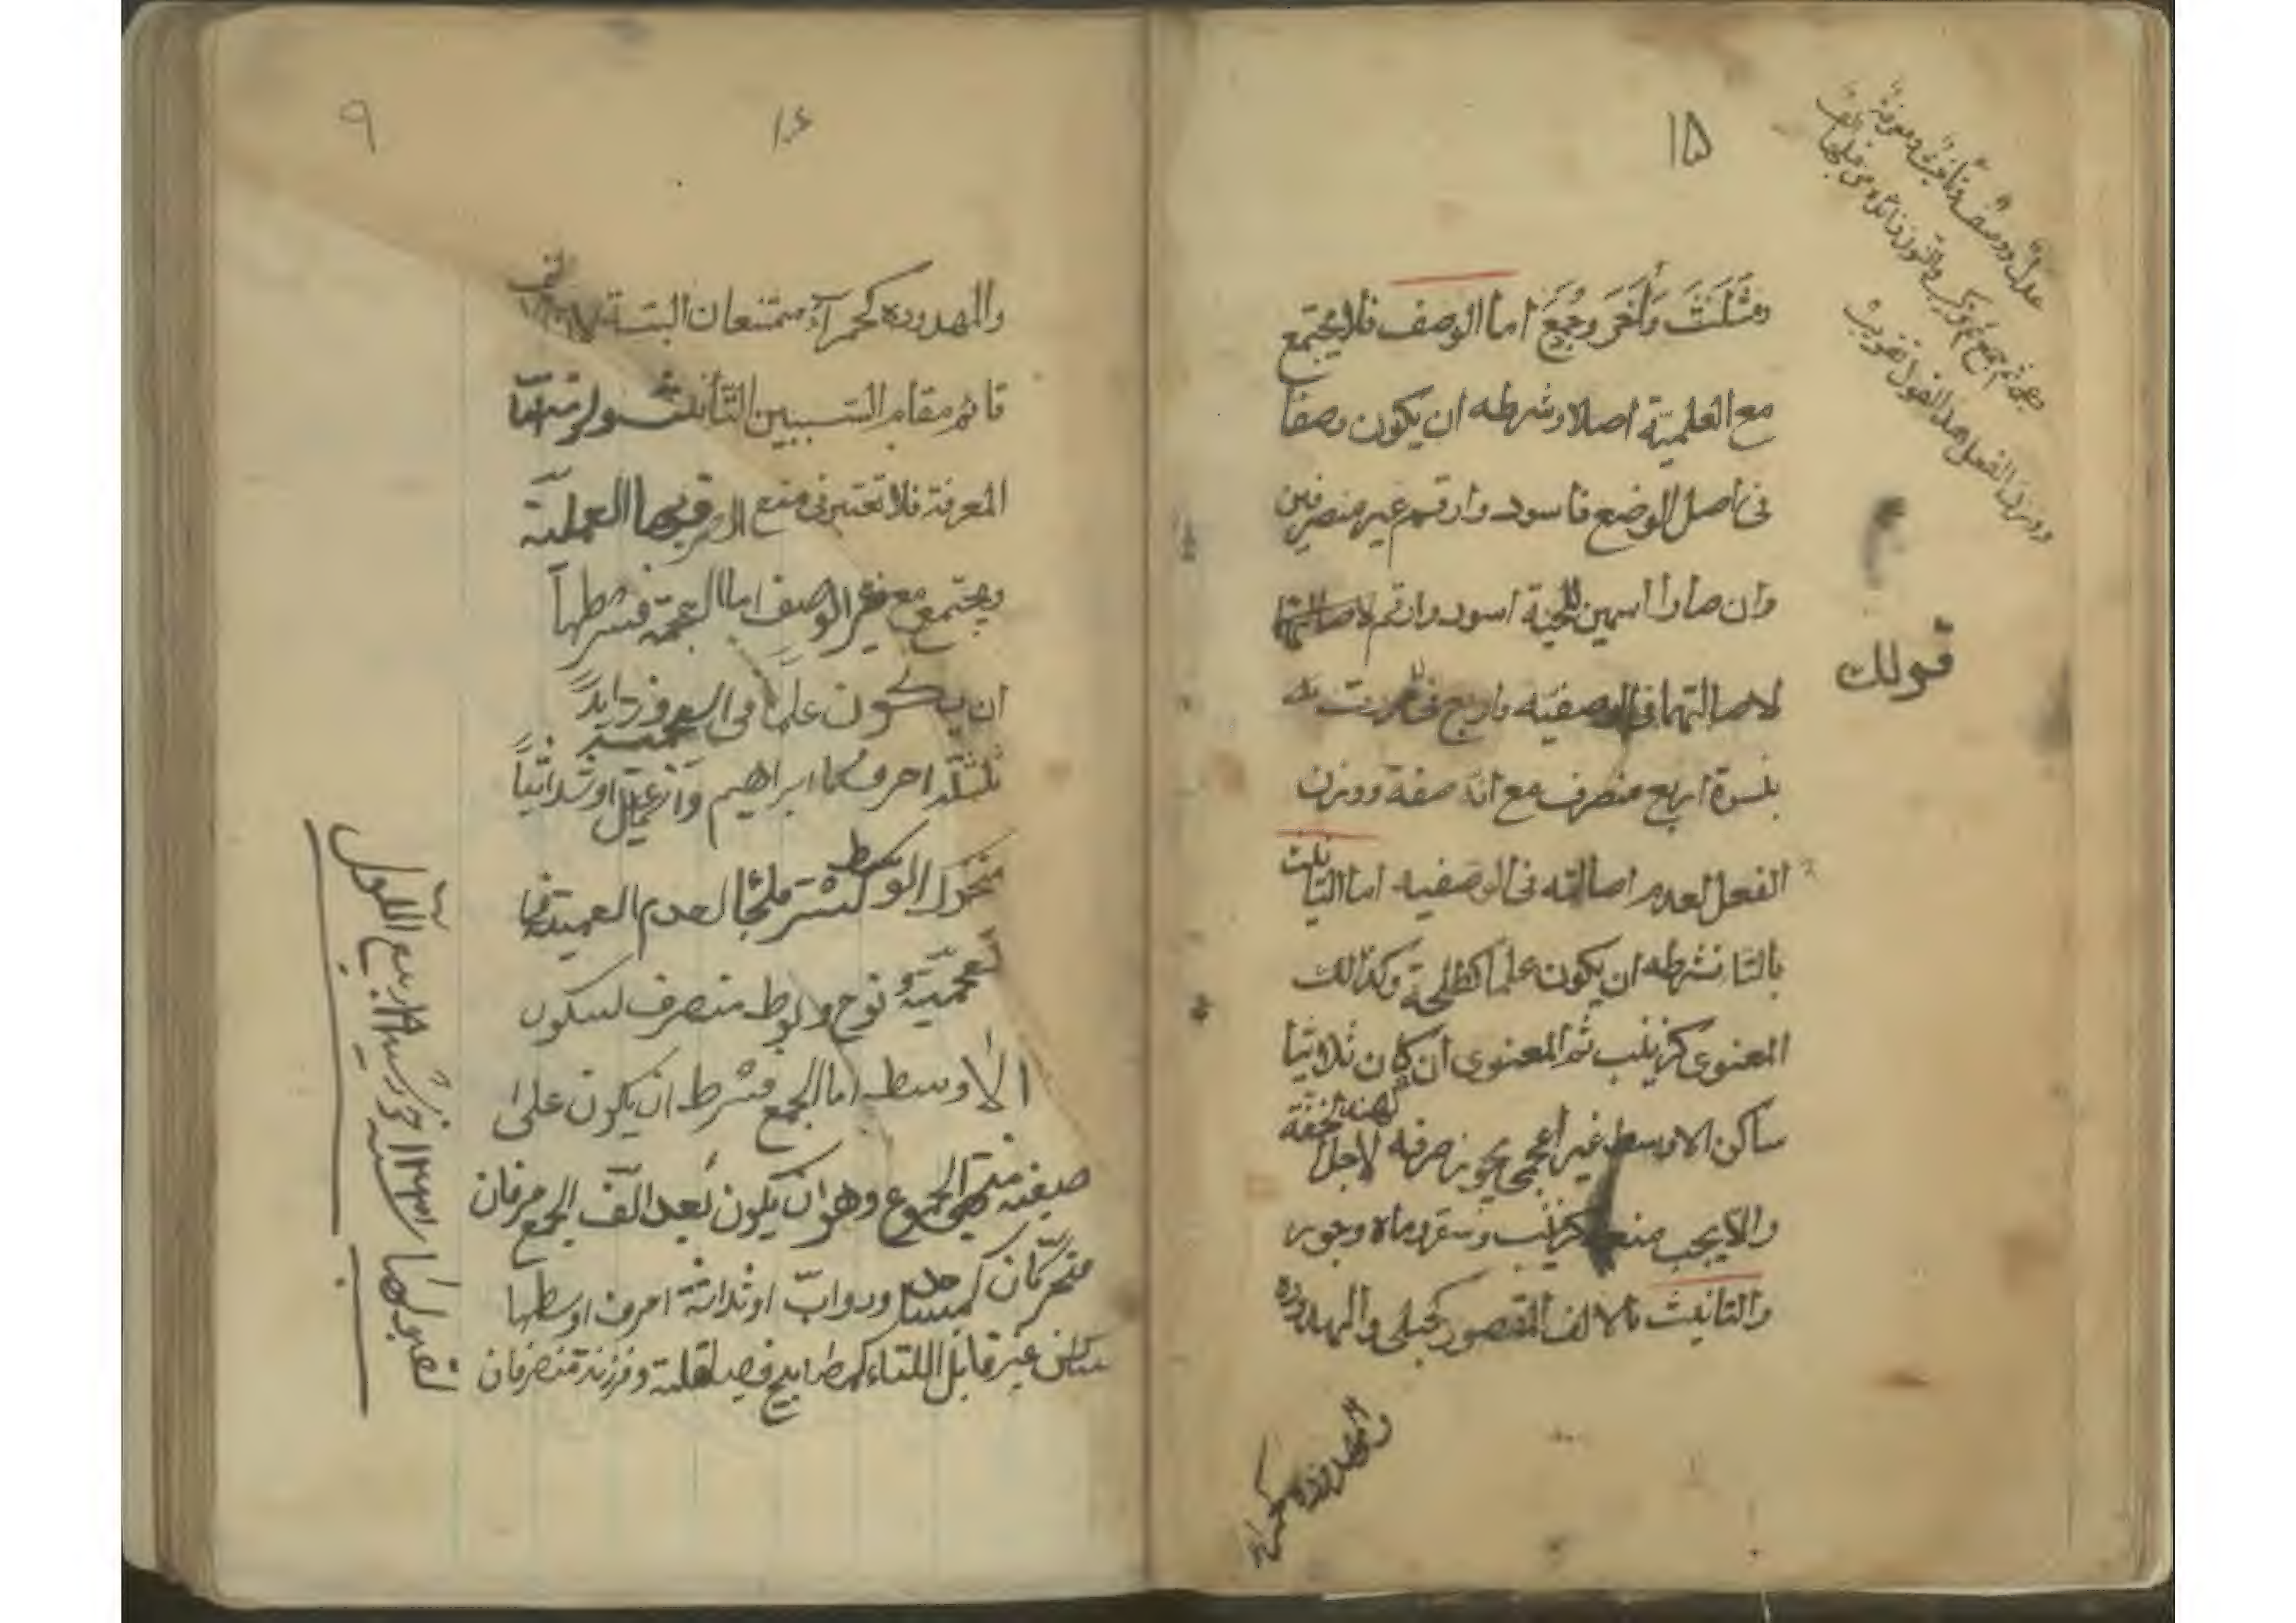 ۱۵
عدل ووصف وتأنيث ومعرفة
وعجمة ثم جمع ثم تركيب والنون زائدة من قبلها الف
ووزن الفعل هذا القول تقريب
ومثلث وأخر وجمع اما الوصف فلا يجتمع
مع العلمية اصلا وشرطه ان يكون وصفا
فى اصل الوضع فاسود وارقم غير منصرفين
وان صارا اسمين للحية اسود وارقم لاصالتهما
لاصالتهما فى الوصفيه واربع فى مررت
بنسوة اربع منصرف مع انه صفة ووزن
الفعل لعدم اصالته فى الوصفيه اما التانيث
بالتا فشرطه ان يكون علما كطلحة وكذالك
المعنوى كزينب ثم المعنوى ان كان ثلاثيا
ساكن الاوسط غير اعجمى يجوز صرفه لاجل الخفة
كهند
والا يجب منعه كزينب وسقر وماه وجور
والتانيث بالالف المقصور كحبلى والممدوده
والممدوده كحمراء
قولك
۱۶
۹
والممدوده كحمرآء ممتنعان البتة
قائم مقام السببين التأنيث ولزومه اما
المعرفة فلا تعتبر فى منع الصرف بها العلمية
ويجتمع مع غير الوصف اما العجمة فشرطها
ان يكون علما فى العجمية وزايدا
ثلثة احرف كابراهيم واسمعيل او ثلاثيا
متحرك الوسط كشتر فلجام لعدم العلمية
لعجمية ونوح ولوط منصرف لسكون
الاوسط اما الجمع فشرط ان يكون على
صيغة منتهى الجموع وهو ان يكون بعد الف الجمع حرفان
متحركان كمساجد ودوابّ او ثلاثة احرف اوسطها
ساكن غير قابل اللتاء كمصابيح فصياقلة وفرزنة منصرفان